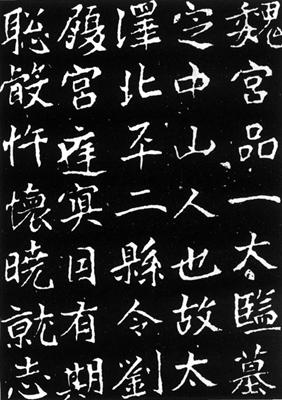 魏宮品一太監墓
定中山人也故太
澤北平二縣令劉
宮庭有期
聡忤懷曉就志